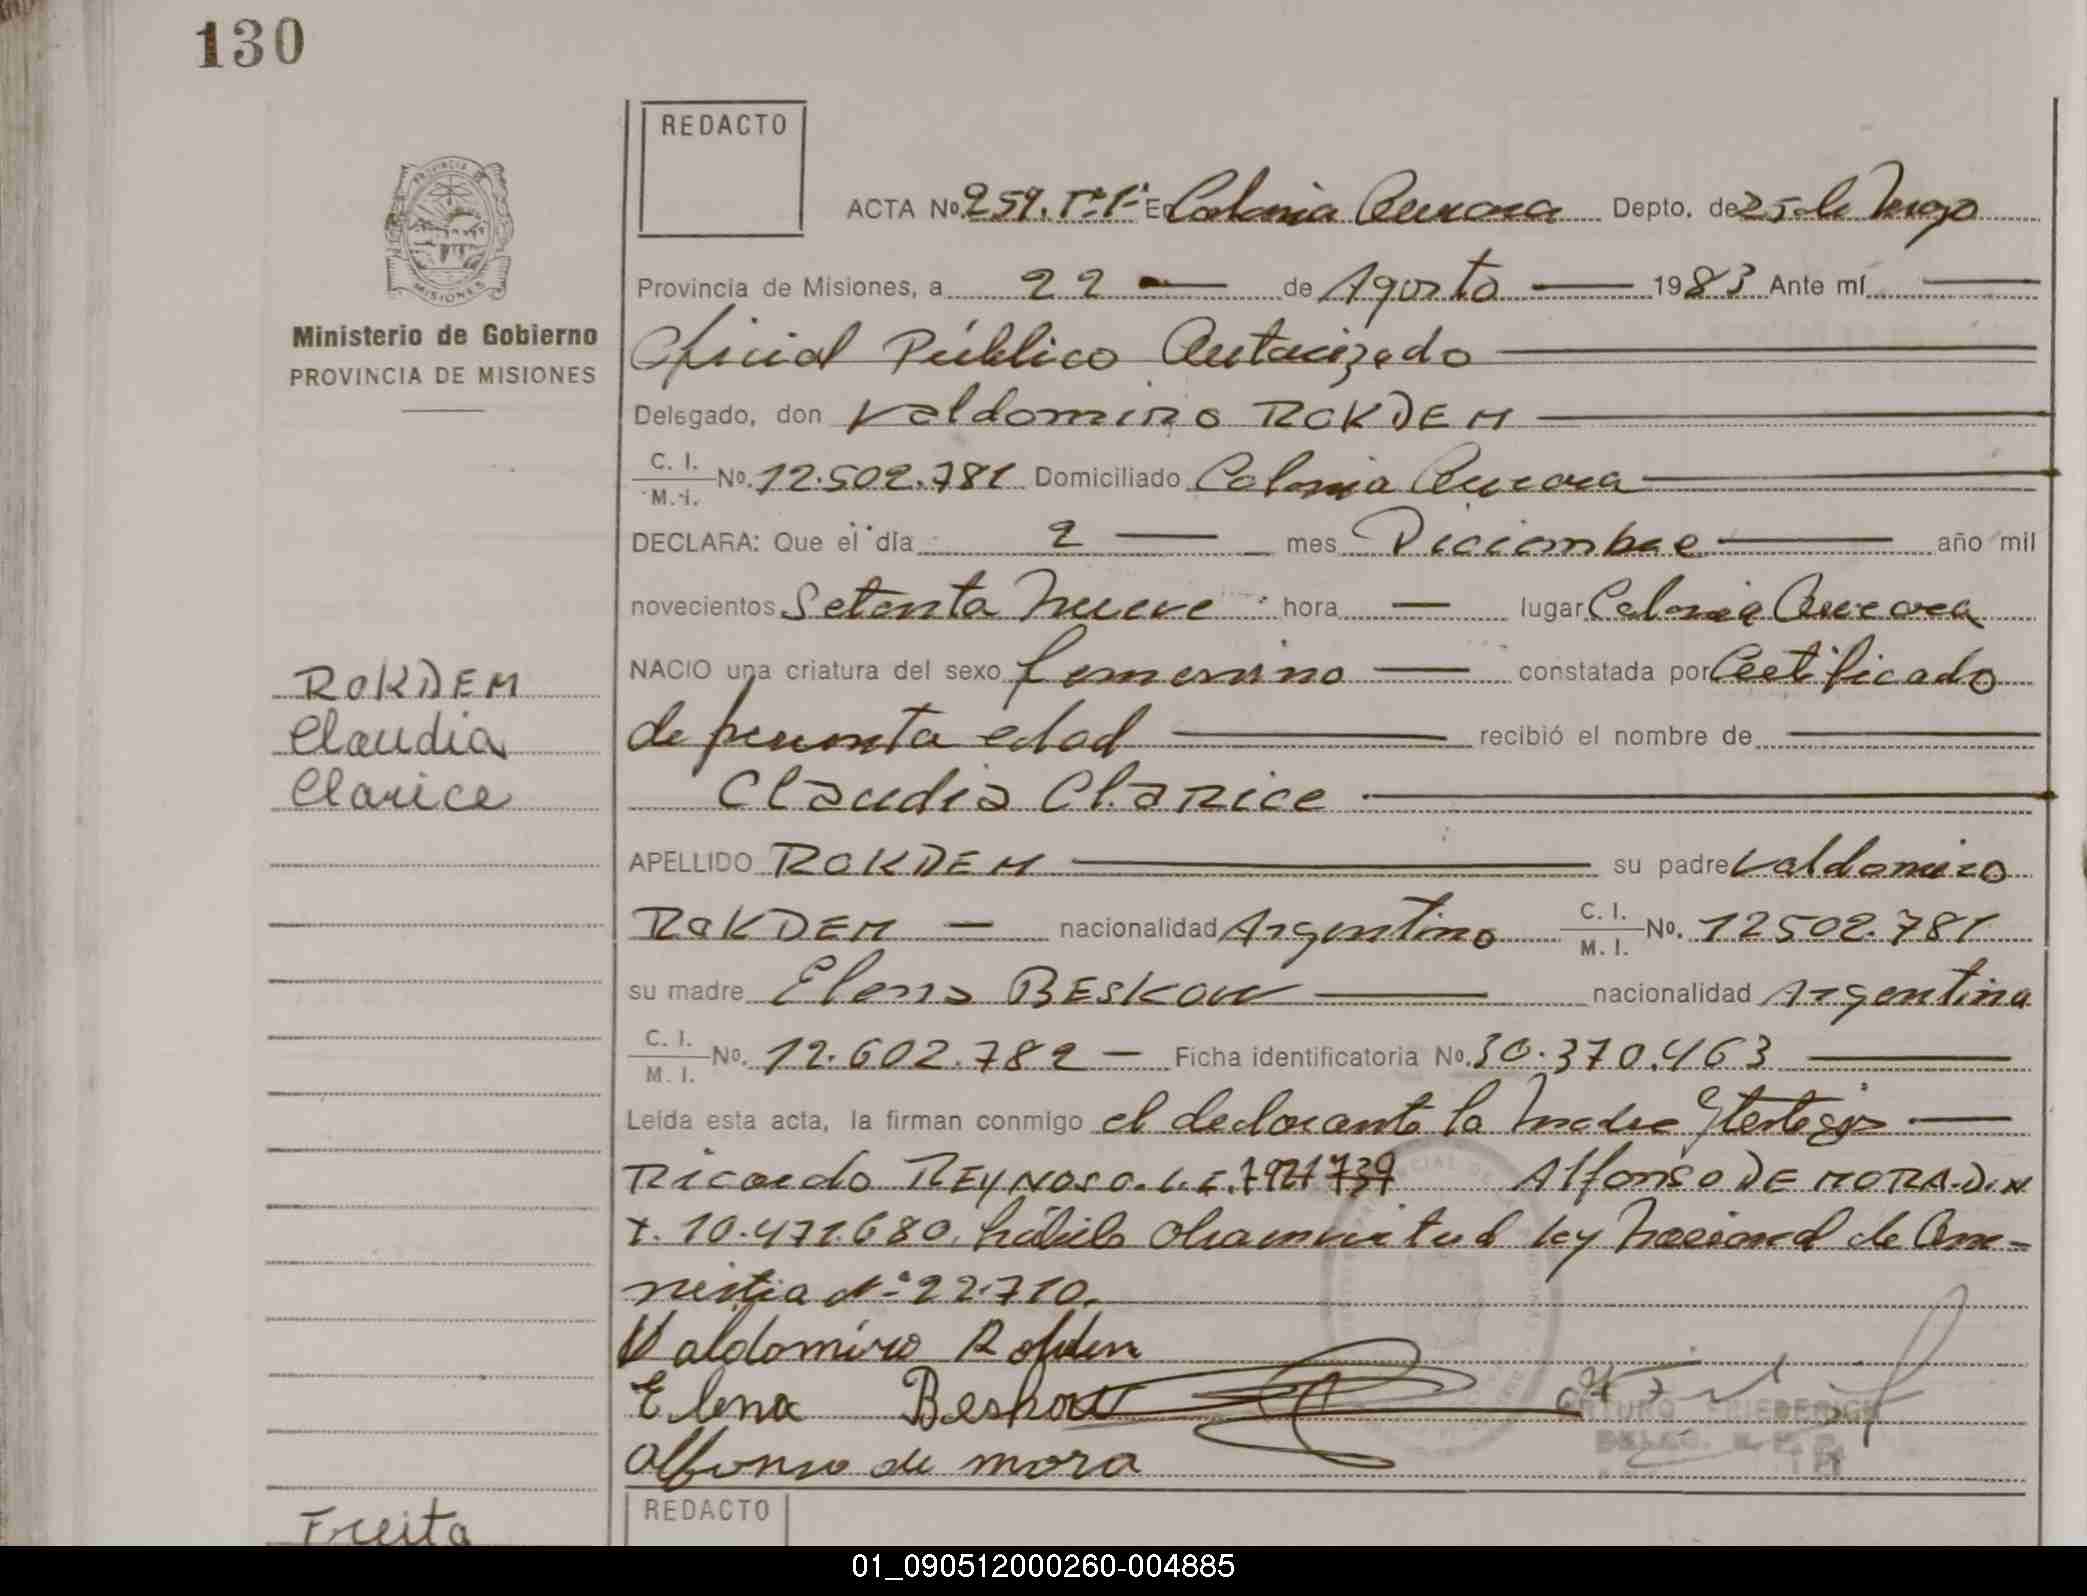 130
REDACTO
ACTA No. 259. Tº 1º En Colonia Aurora Depto. de 25 de Mayo
Provincia de Misiones, a 22 — de Agosto — 1983 Ante mí —
Ministerio de Gobierno
PROVINCIA DE MISIONES
Oficial Público Autorizado —
Delegado, don Valdomiro ROKDEM —
C. I.
M. I. No. 12.502.781 Domiciliado Colonia Aurora —
DECLARA: Que el día 2 — mes Diciembre — año mil
novecientos Setenta Nueve hora — lugar Colonia Aurora
NACIO una criatura del sexo femenino — constatada por Certificado
de presunta edad — recibió el nombre de —
Claudia Clarice —
ROKDEM
Claudia
Clarice
APELLIDO ROKDEM — su padre Valdomiro
ROKDEM — nacionalidad Argentino C. I. M. I. No. 12502.781
su madre Elena BESKOW — nacionalidad Argentina
C. I.
M. I. No. 12.602.782 — Ficha identificatoria No. 30.370.463 —
Leída esta acta, la firman conmigo el declarante la Madre y testigos —
Ricardo REYNOSO. L.E. 7921739 Alfonso DE MORA. D.N
I. 10.471.680. hábiles Ley Nacional de Am-
nistia Nº 22.710.
Valdomiro Rokden
Elena Beskow
Alfonso de mora
ARTURO FRIEDERICH
REDACTO
Freita
01_090512000260-004885